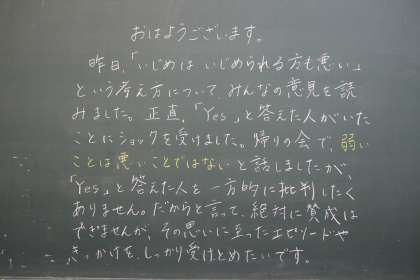 おはようございます。
昨日、「いじめは いじめられる方も悪い」
という考え方について、みんなの意見を読
みました。正直、「Yes」と答えた人がいた
ことにショックを受けました。帰りの会で、弱い
ことは悪いことではないと話しましたが、
「Yes」と答えた人を一方的に批判したく
ありません。だからと言って、絶対に賛成は
できませんが、その思いに立ったエピソードや
きっかけを、しっかり受けとめたいです。